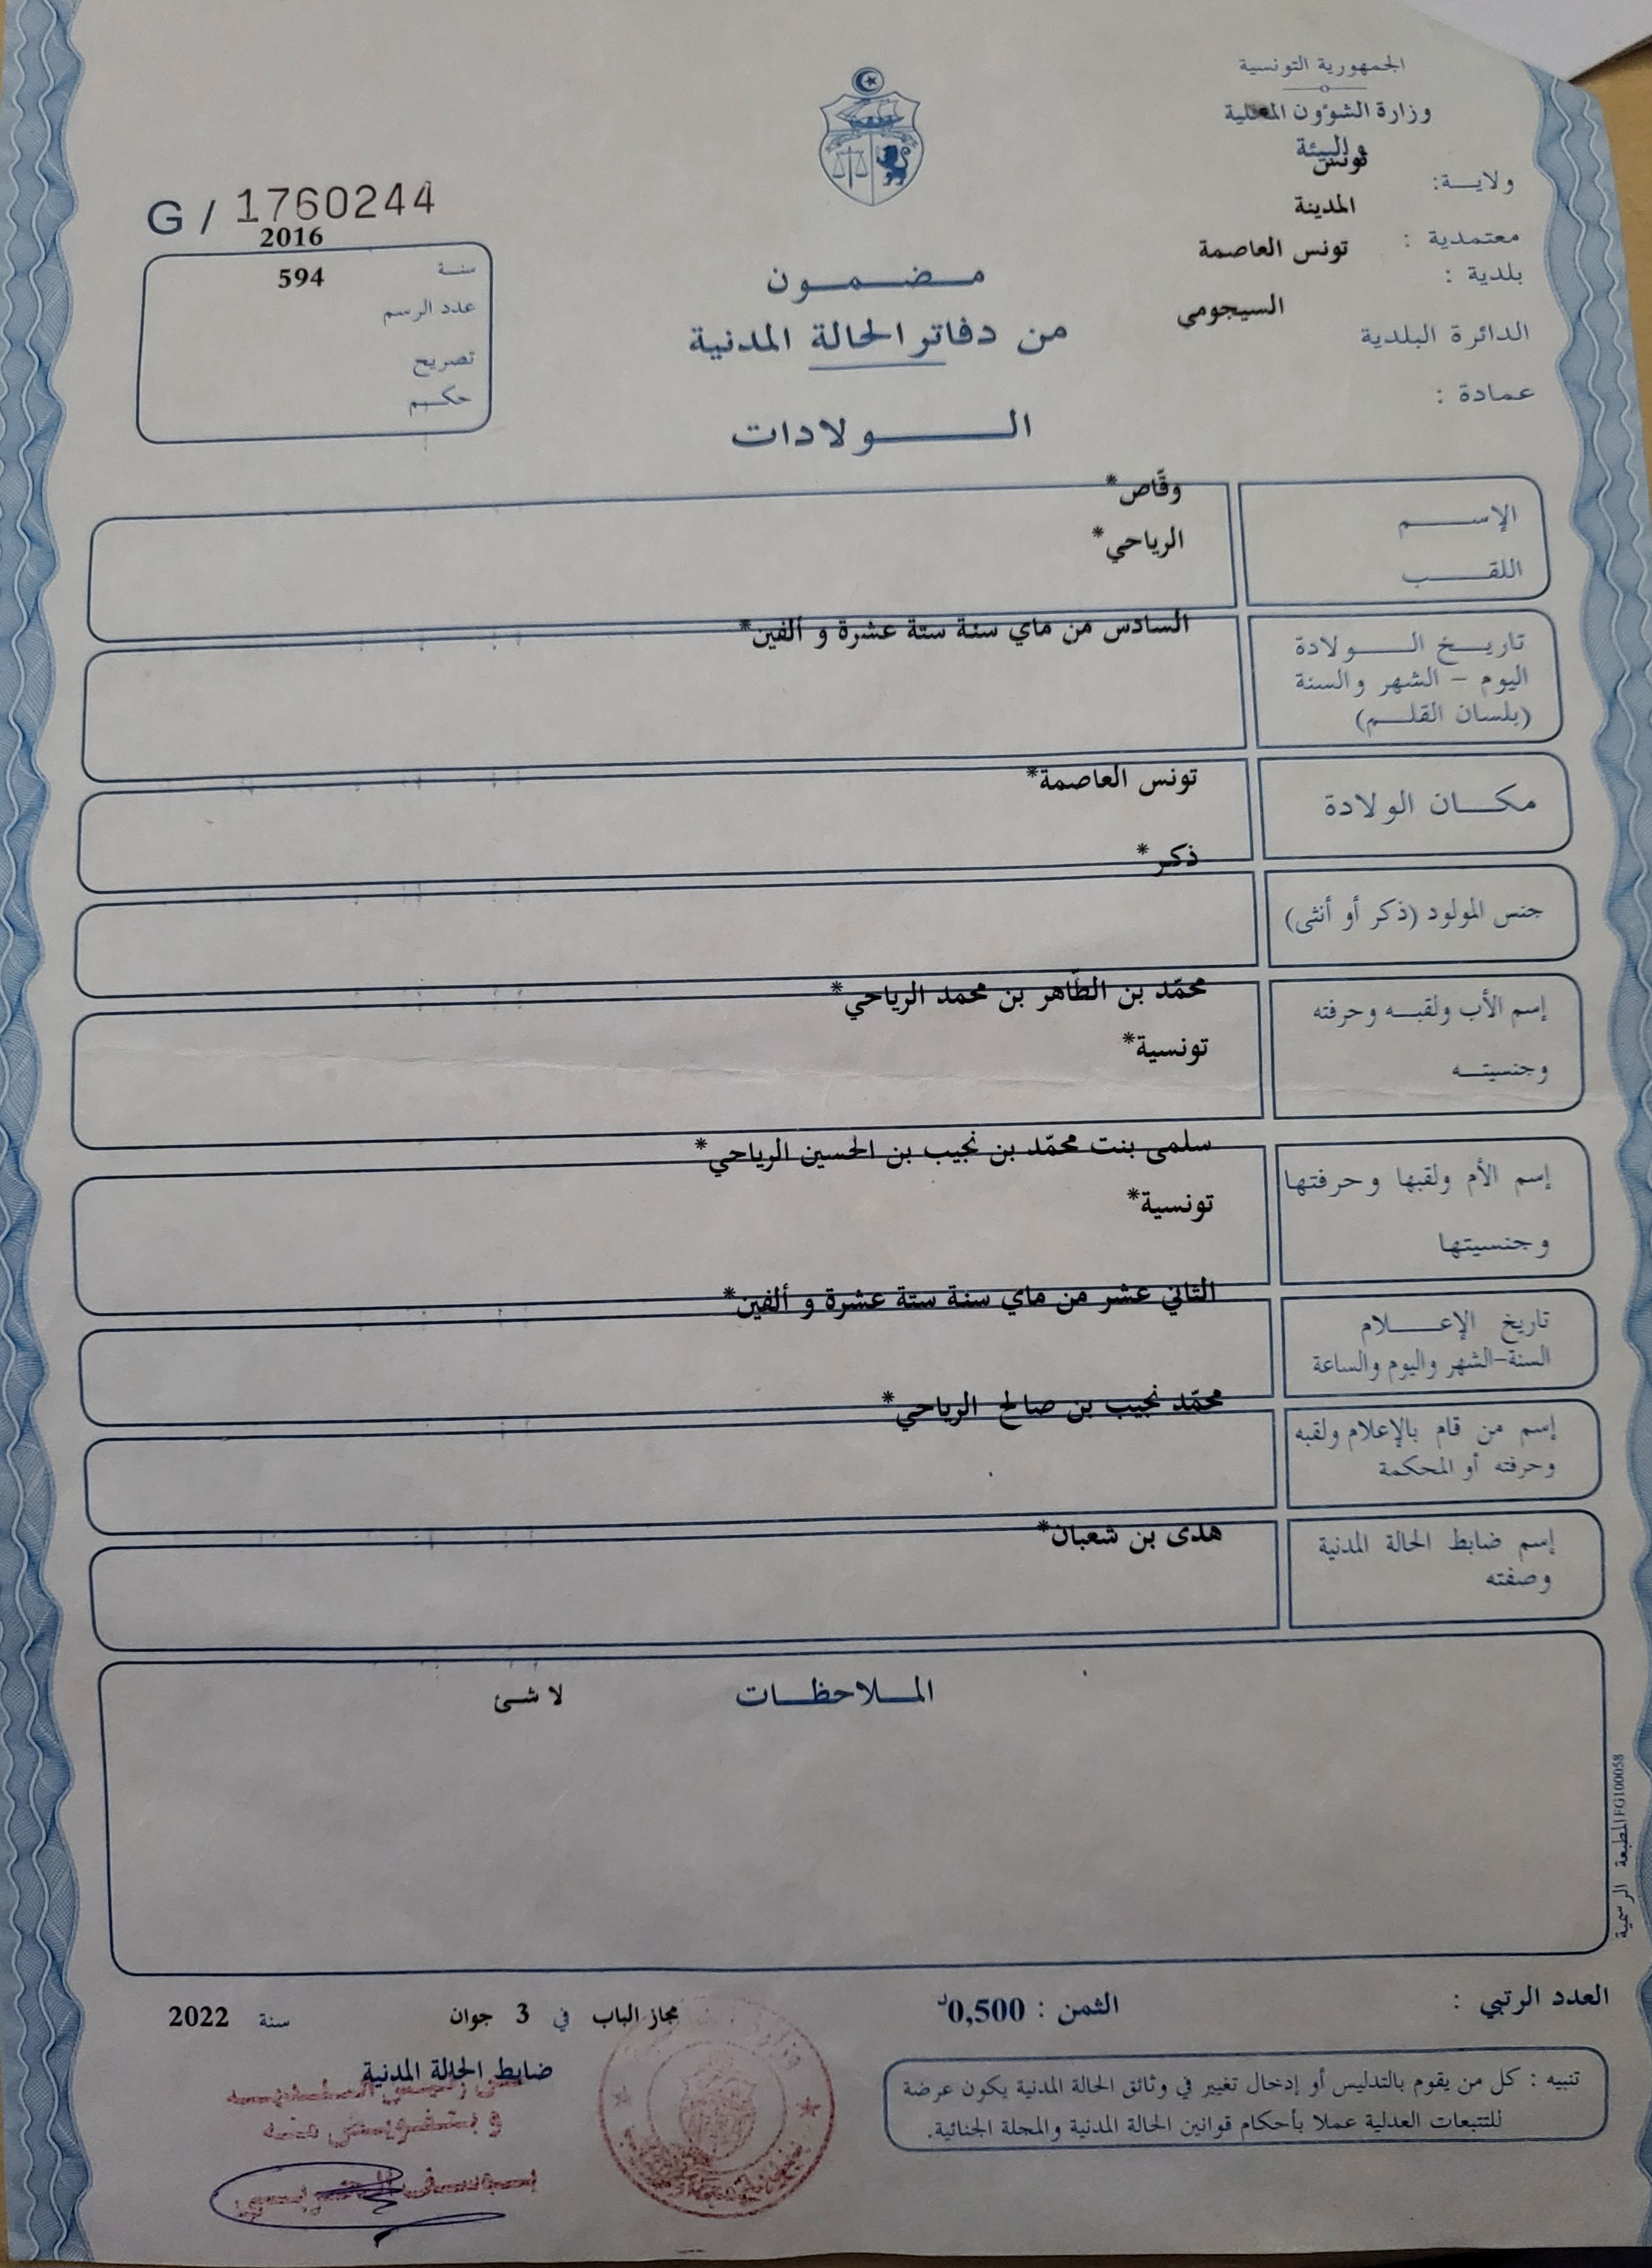 الجمهورية التونسية
وزارة الشؤون المحلية
والبيئة
ولاية: تونس
معتمدية : المدينة
بلدية : تونس العاصمة
الدائرة البلدية السيجومي
عمادة :
G / 1760244
سنة 2016
عدد الرسم 594
تصريح
حكم
مضمون
من دفاتر الحالة المدنية
الولادات
الإسم وقّاص*
اللقب الرياحي*
تاريخ الولادة السادس من ماي سنة ستة عشرة و ألفين*
اليوم - الشهر والسنة
(بلسان القلم)
مكان الولادة تونس العاصمة*
جنس المولود (ذكر أو أنثى) ذكر*
إسم الأب ولقبه وحرفته محمّد بن الطّاهر بن محمد الرياحي*
وجنسيته تونسية*
إسم الأم ولقبها وحرفتها سلمى بنت محمّد بن نجيب بن الحسين الرياحي*
وجنسيتها تونسية*
تاريخ الإعلام الثاني عشر من ماي سنة ستة عشرة و ألفين*
السنة-الشهر واليوم والساعة
إسم من قام بالإعلام ولقبه محمّد نجيب بن صالح الرياحي*
وحرفته أو المحكمة
إسم ضابط الحالة المدنية هدى بن شعبان*
وصفته
الملاحظات لا شئ
المطبعة الرسمية FG100058
العدد الرتبي :
الثمن : 0,500د
مجاز الباب في 3 جوان سنة 2022
ضابط الحالة المدنية
عن رئيس البلدية
وبتفويض منه
يوسف
تنبيه : كل من يقوم بالتدليس أو إدخال تغيير في وثائق الحالة المدنية يكون عرضة
للتتبعات العدلية عملا بأحكام قوانين الحالة المدنية والمجلة الجنائية.